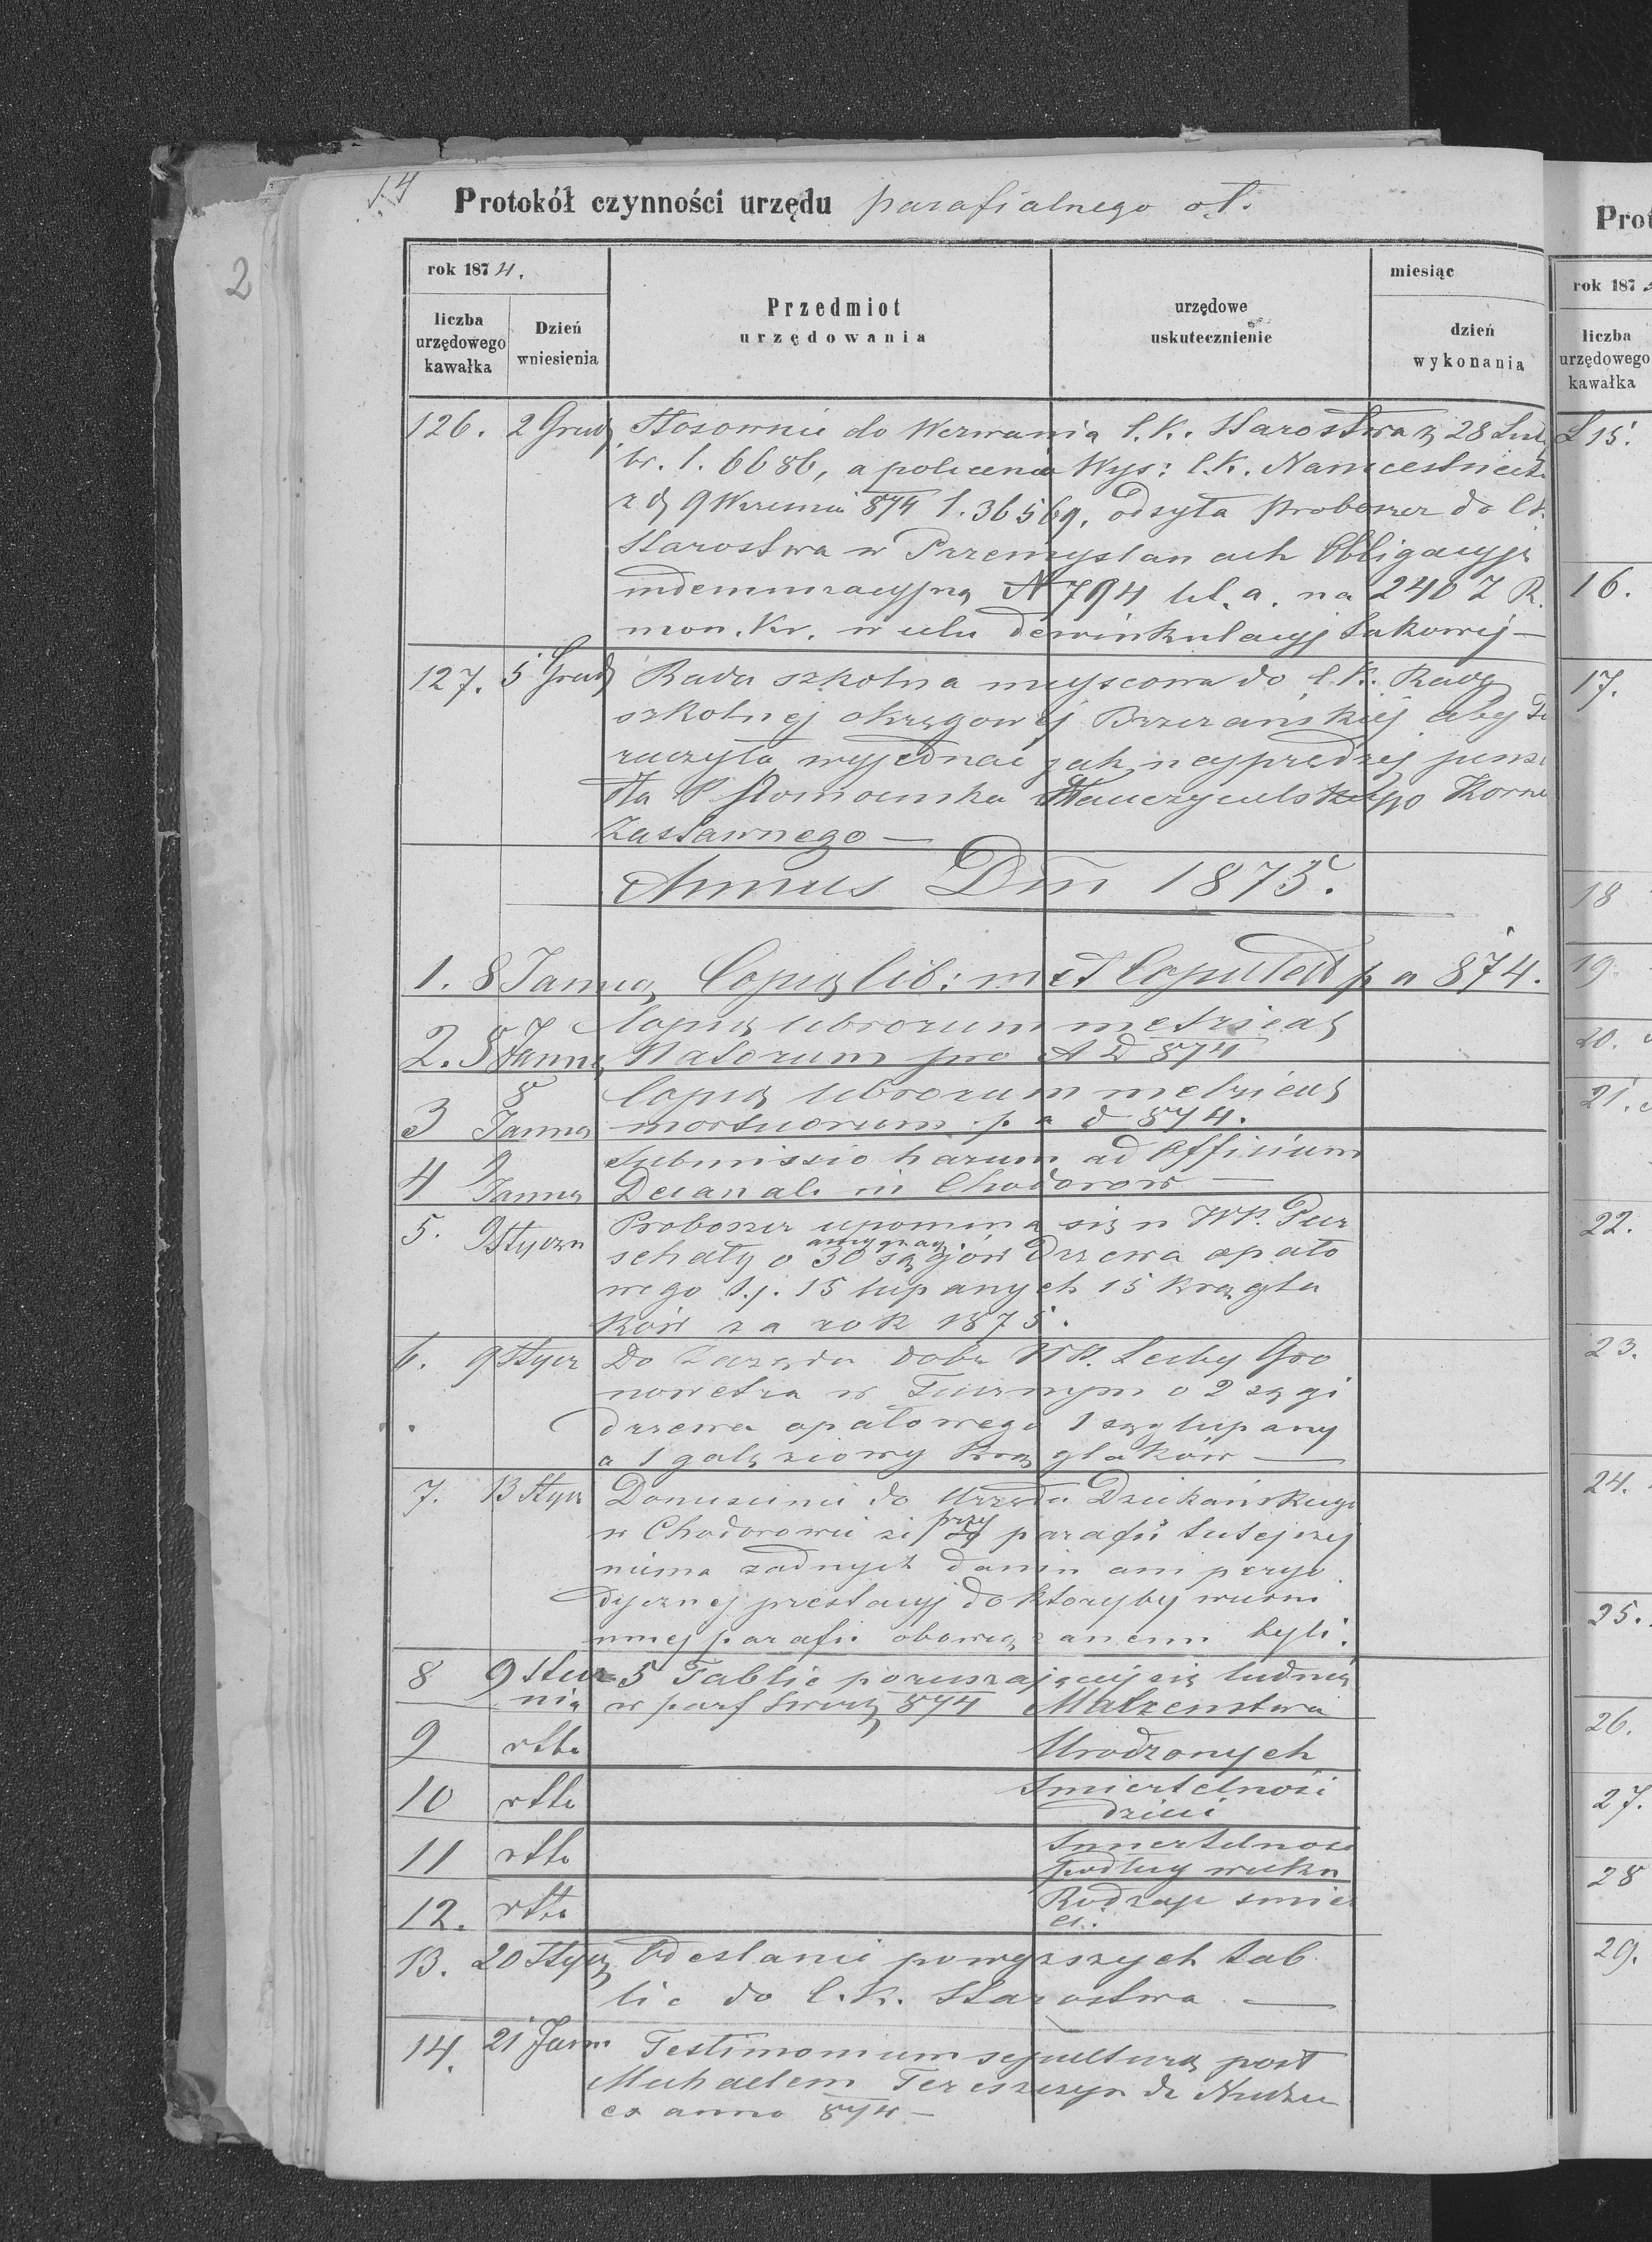 14
2
Protokół czynności urzędu parafialnego o.ł.
rok 1874.
liczba urzędowego kawałka
Dzień wniesienia
Przedmiot urzędowania
urzędowe uskutecznienie
miesiąc
dzień wykonania
126. 2 Grud Stosownie do Wezwania C.K. Starostwa z 28
br. l. 6686, a polecenia Wys: C.K. Namiestnict
z d 9 Wrzesnia 874 l. 36569, odsyła Proboszcz do CK
Starostwa w Przemyslanach Obligacyję
indemnizacyjną N 794 lit. a. na 240 Z R.
mon. Kr. w celu dewinkulacyj takowej —
127. 5 Grud Rada szkolna miejscowa do C.K. Rady
szkolnej okręgowej Brzezańskiej aby
raczyła wyjednać jak najprędzej
dla P
Zasławnego —
Annus Dni 1875.
1. 8 Janua Copia lib: met Copulat p a 874.
2. 8 Janua Copia librorum metrica
Natorum pro A D 874
3 8 Janua Copia librorum metrica
mortuorum p a d 874.
4 9 Janua Submissio harum ad Officium
Decanale in Chodorow —
5. 9 Styczn Proboszcz upomina się u WP. Pur
schały o 30 sągów drzewa opało
wego t.j. 15 łupanych 15 krągla
ków za rok 1875.
6. 9 Stycz Do Zarządu dobr WP. Gro
nowetra w o 2 sągi
drzewa opałowego 1 sąg łupany
a 1 gałęziowy krąglaków —
7. 13 Stycz Doniesienie do Urzędu Dziekańskiego
w Chodorowie że przy parafii tutejszej
niema żadnych danin ani peryo
dycznej prestacyj do ktoryby wierni
innej parafii obowiązanemi byli.
8 9 Stycznia 5 Tablic poruszającej się ludnoś
w parf 874 Małżenstwa
9 Urodzonych
10 Smiertelnosi
dzieci
11 Smiertelnosc
podług wieku
12. Rodzaje smier
ci.
13. 20 Stycz Odesłanie powyższych tab
lic do C.K. Starostwa —
14. 21 Janu Testimonium sepultura post
Michaelem Tereszczyn de
ex anno 874 —
Prot
rok 187
liczba urzędowego kawałka
15.
16.
17.
18
19.
20.
21.
22.
23.
24.
25.
26.
27.
28
29.